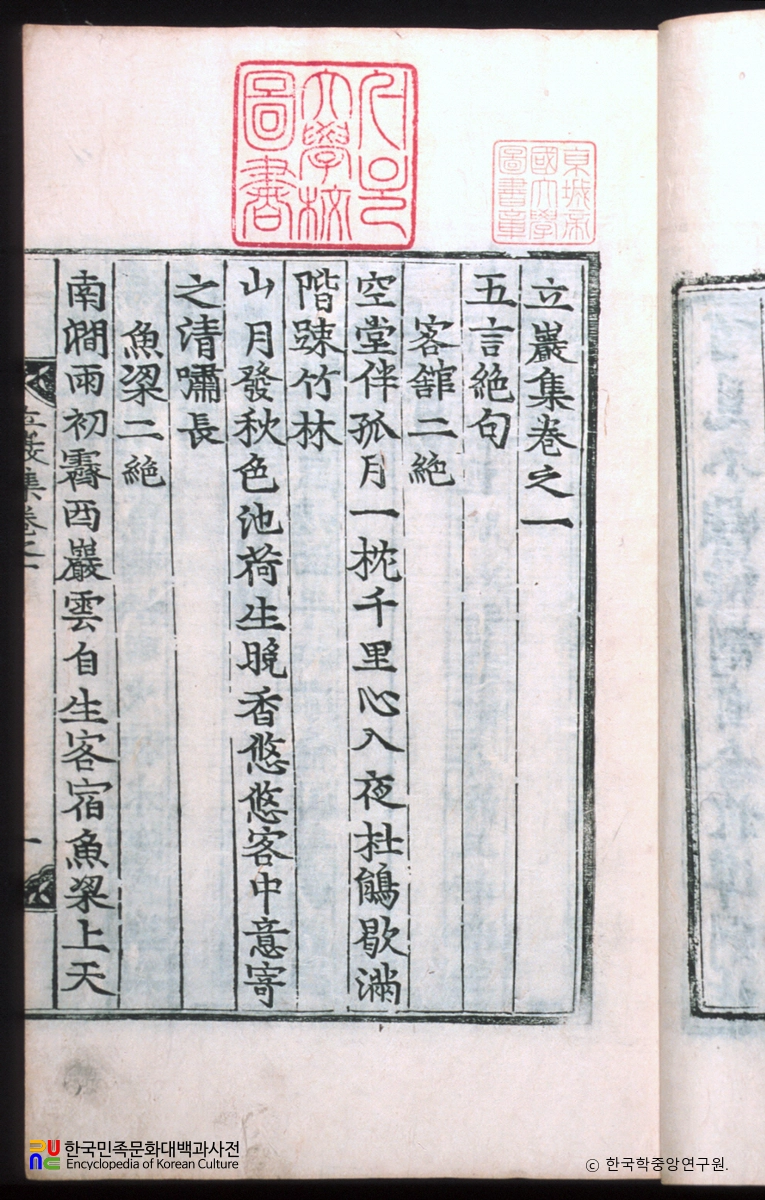 서울大學校圖書
京城帝國大學圖書章
立巖集卷之一
五言絶句
客舘二絶
空堂伴孤月一枕千里心入夜杜鵑歇滿
階踈竹林
山月發秋色池荷生晩香悠悠客中意寄
之清嘯長
魚梁二絶
南澗雨初霽西巖雲自生客宿魚梁上天
立巖集卷之一
一
한국민족문화대백과사전
Encyclopedia of Korean Culture
ⓒ 한국학중앙연구원.